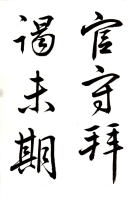 官守拜
谒未期